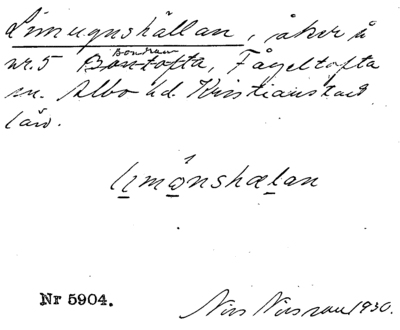 Limugnshällan, åker å
nr. 5 Bontofta, Fågeltofta
sn. Albo hd. Kristianstad
län.
limónshælan
Nr 5904.
Nils Nilsson 1930.